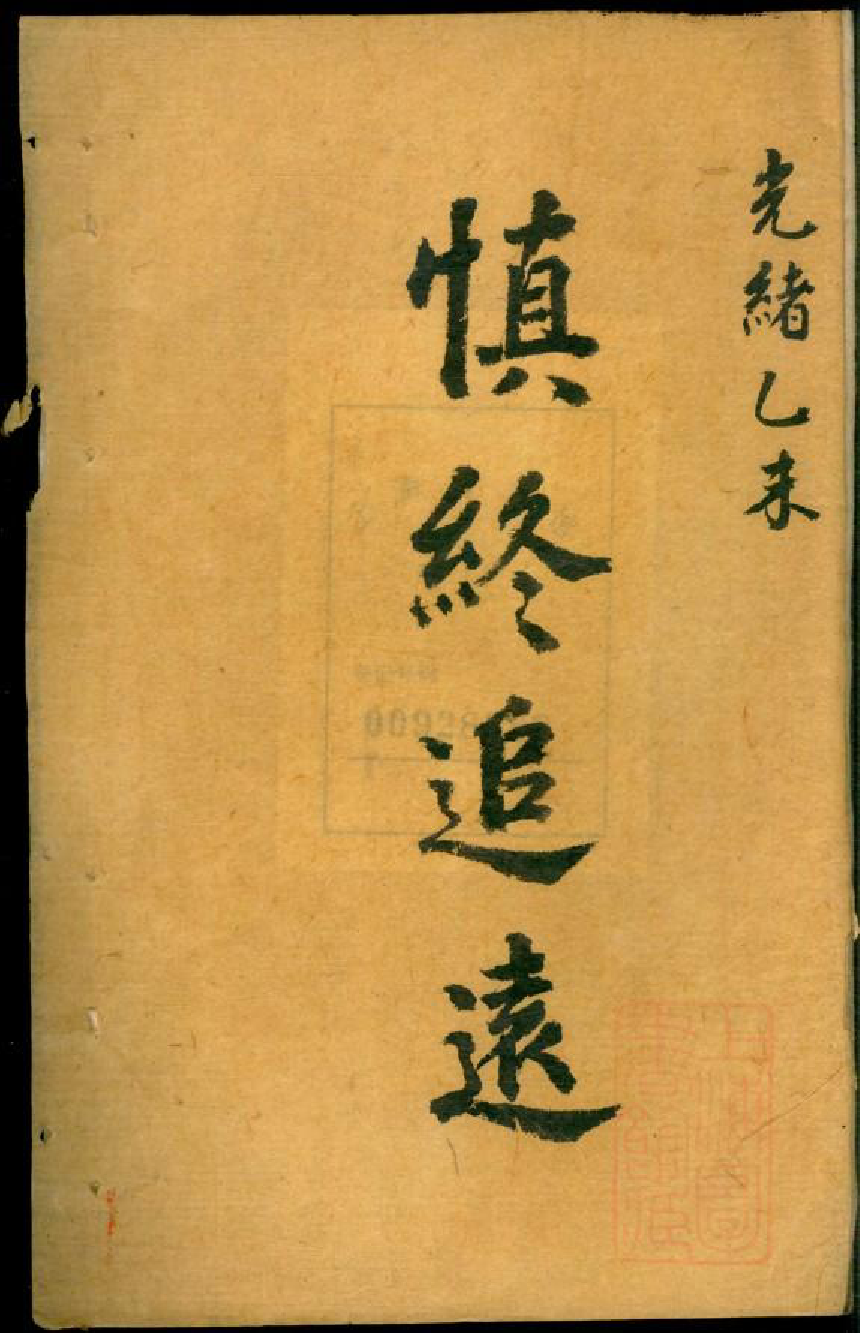 光緒乙未
慎終追遠